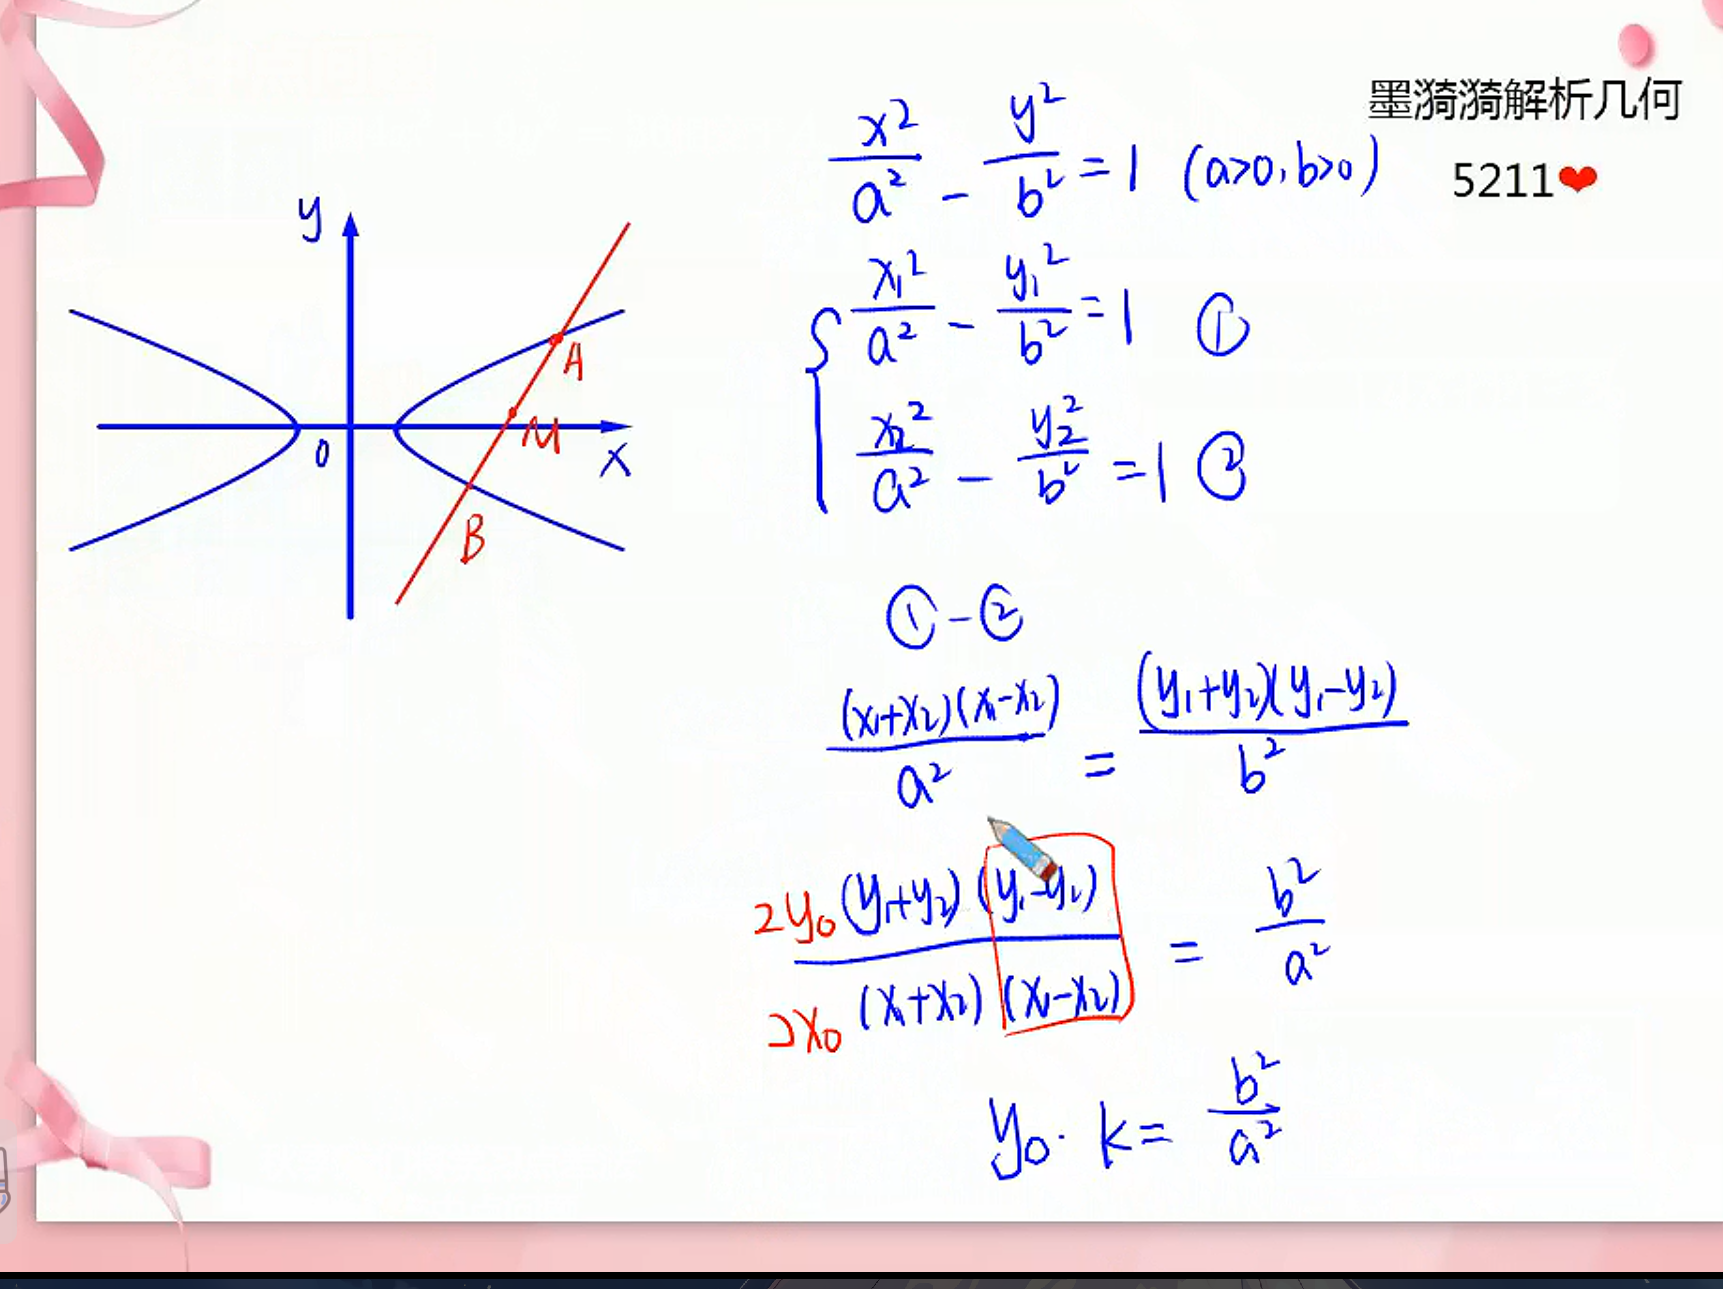 墨漪漪解析几何
5211❤
x²/a² - y²/b² = 1 (a>0, b>0)
x₁²/a² - y₁²/b² = 1 ①
x₂²/a² - y₂²/b² = 1 ②
y
A
M
O
x
B
① - ②
(x₁+x₂)(x₁-x₂)/a² = (y₁+y₂)(y₁-y₂)/b²
2y₀ (y₁+y₂)(y₁-y₂)
2x₀ (x₁+x₂)(x₁-x₂)
= b²/a²
y₀· k = b²/a²